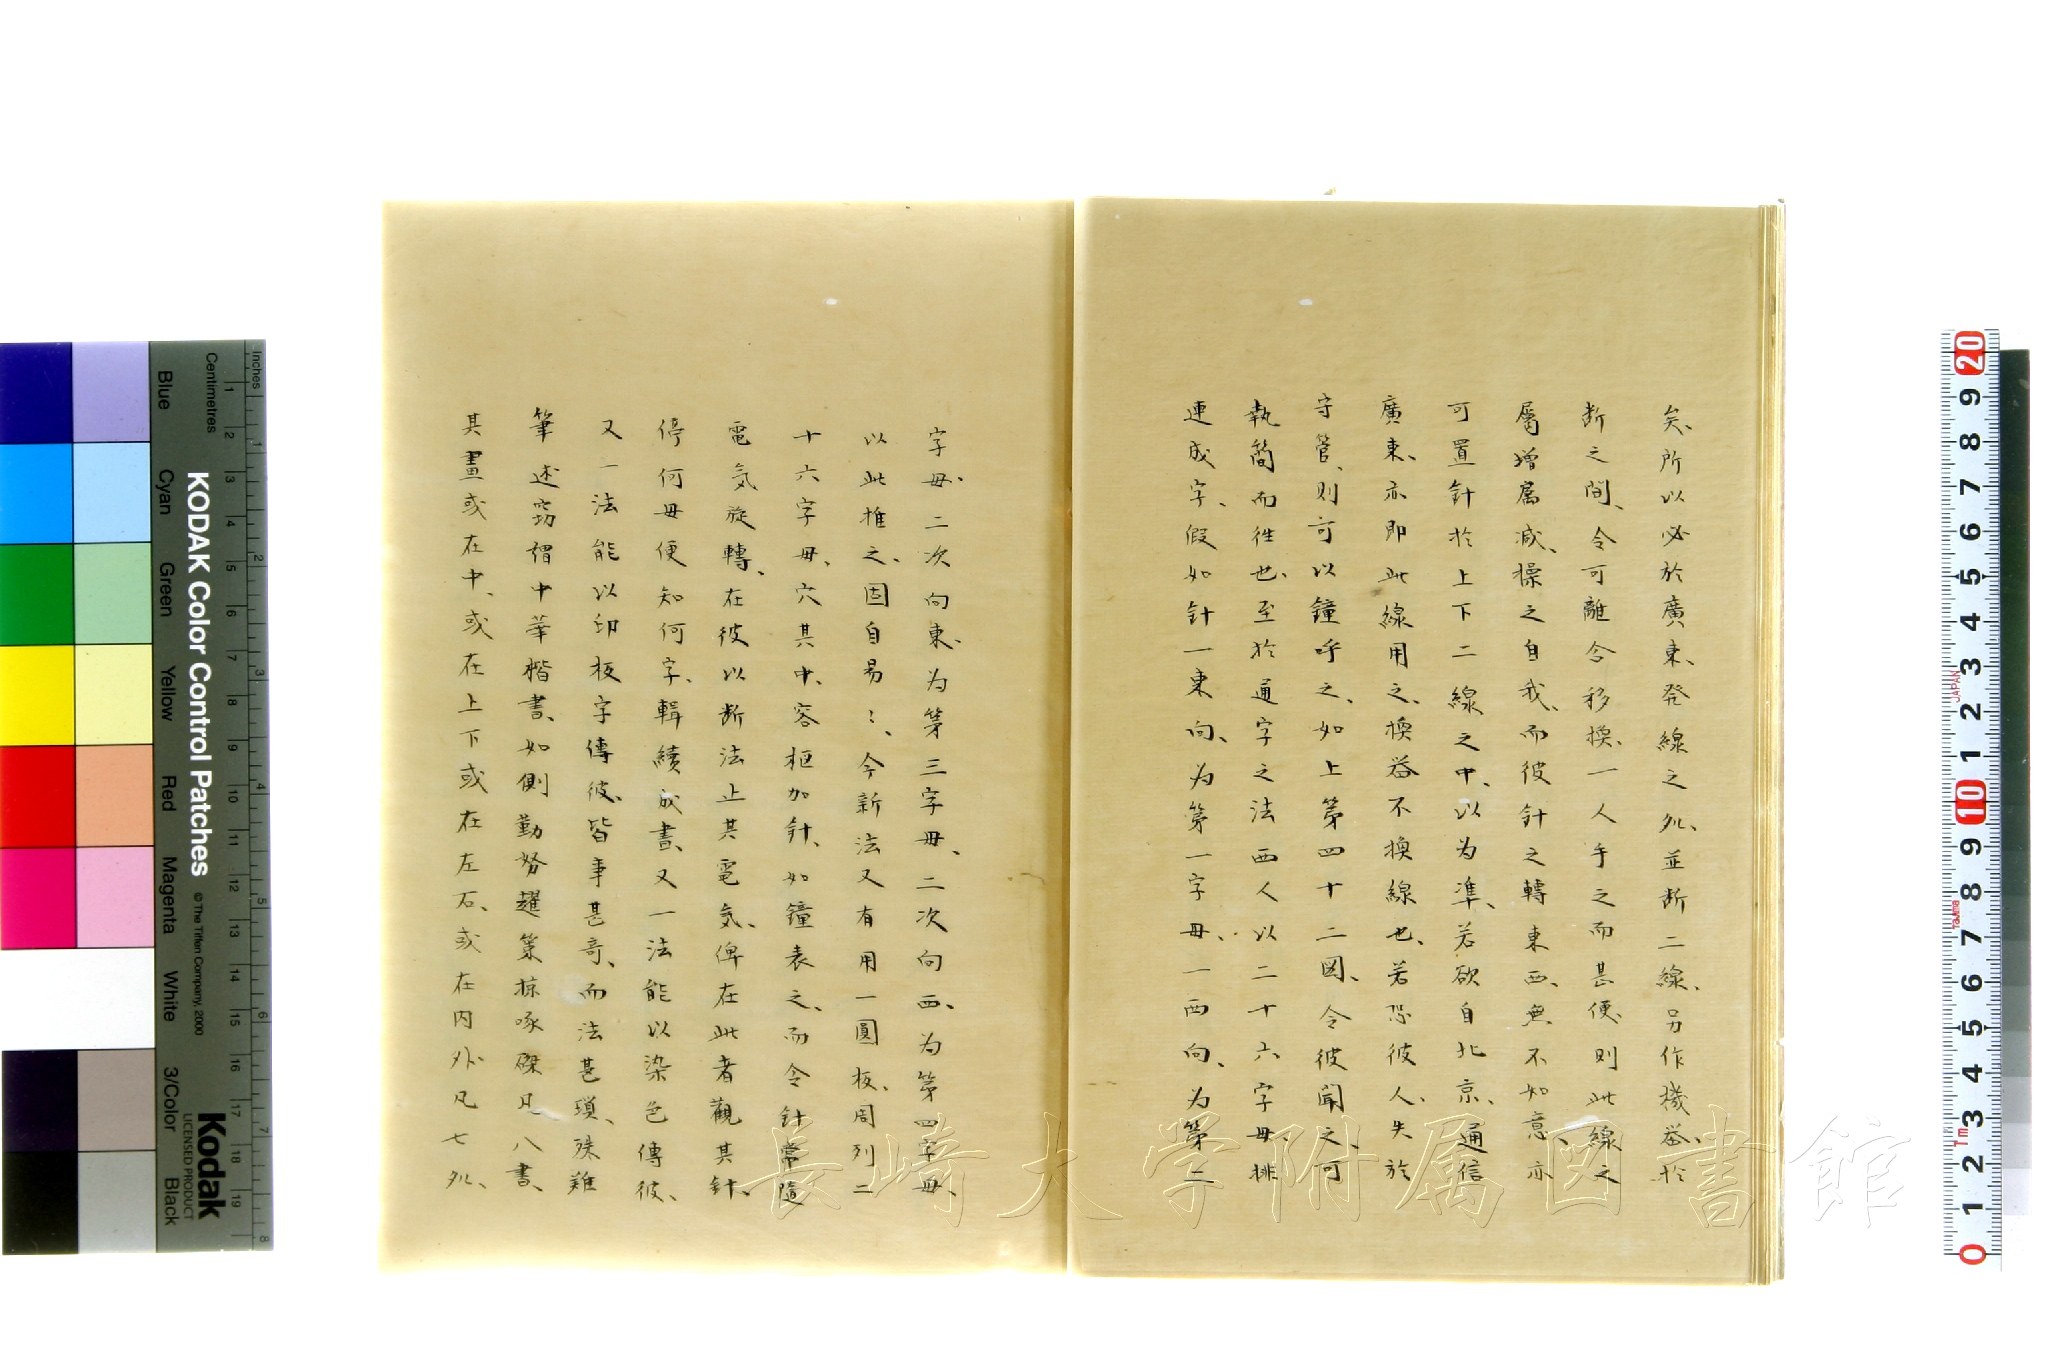 矣、所以必於廣東、發線之処、並斷二線、另作機器於
斷之間、令可離合移換、一人手之而甚便、則此線之
屬增屬减、操之自我、而彼針之轉東西、無不如意、亦
可置針於上下二線之中、以為準、若欲自北京、通信
廣東、亦即此線用之、換器不換線也、若恐彼人、失於
守管、則可以鐘呼之、如上第四十二図、令彼聞之、可
執簡而徃也、至於通字之法西人以二十六字母、排
連成字、假如針一東向、为第一字母、一西向、为第二
字母、二次向東、为第三字母、二次向西、为第四字母、
以此推之、固自易〻、今新法又有用一圓板、周列二
十六字母、穴其中、容枢加針、如鐘表之、而令針常隨
電気旋轉、在彼以断法止其電気、俾在此者觀其針、
停何母便知何字、輯續成書、又一法能以染色傳彼、
又一法能以印板字傳彼、皆事甚奇、而法甚瑣、殊難
筆述窃謂中華楷書、如側勒努趯策掠啄磔凡八書、
其畫或在中、或在上下或在左右、或在内外凡七処、
長崎大学附属図書館
KODAK Color Control Patches
© The Tiffen Company, 2000
Kodak
LICENSED PRODUCT
Inches
Centimetres
Blue
Cyan
Green
Yellow
Red
Magenta
White
3/Color
Black
JAPAN